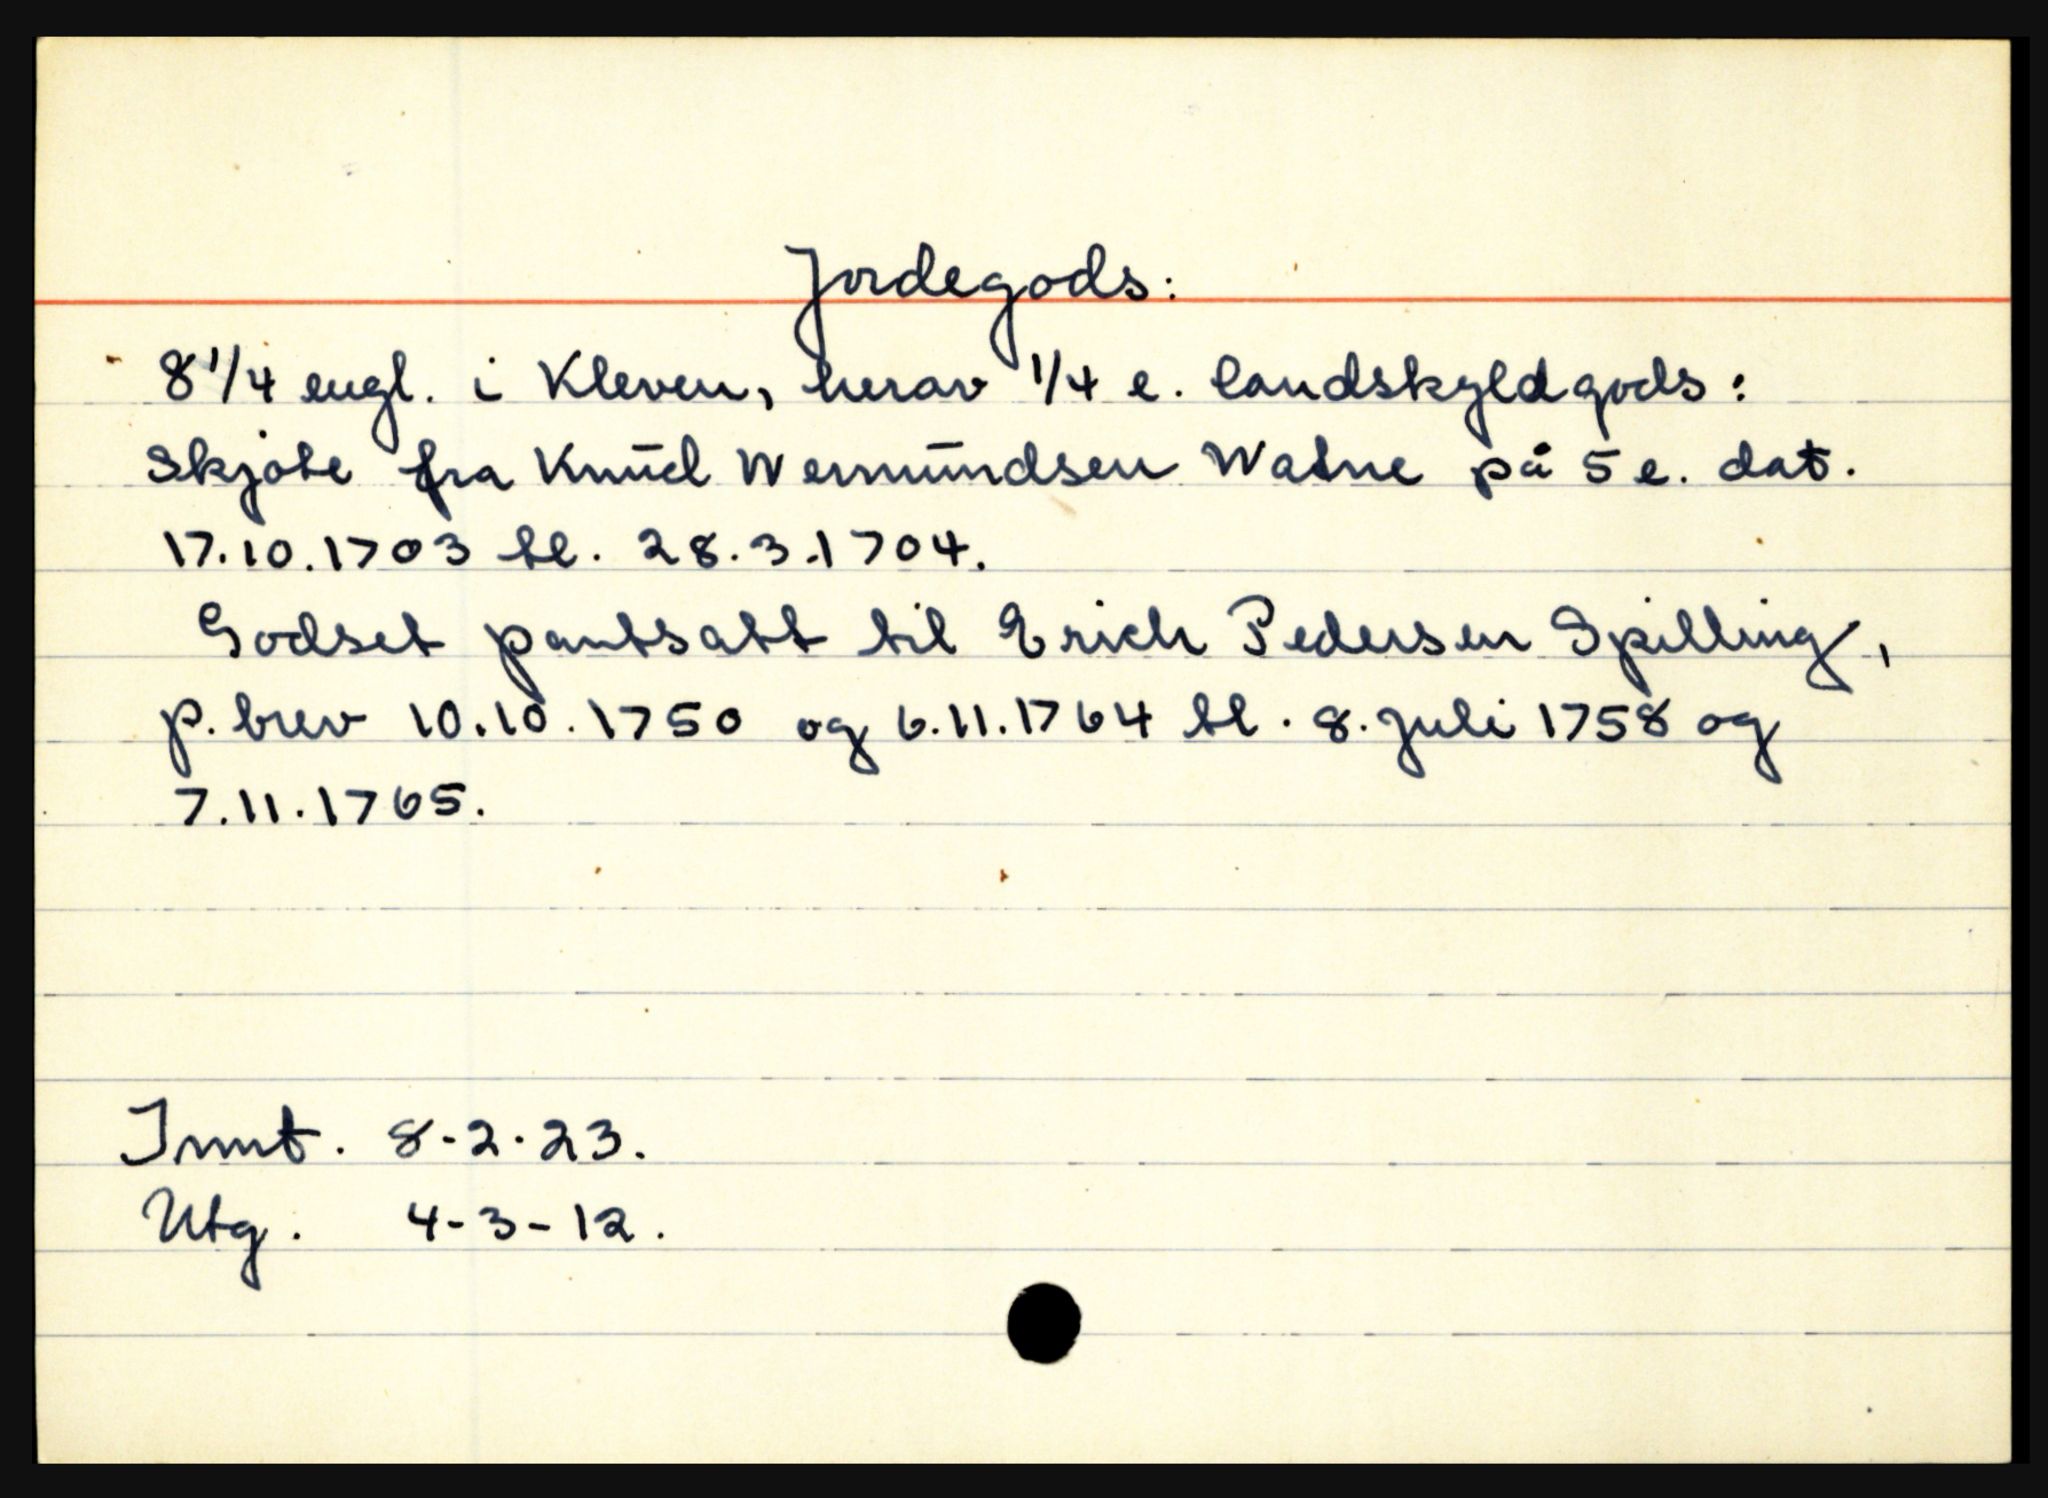 Jordegods:
8 1/4 engl. i Kleven, herav 1/4 e. landskyldgods:
Skjøte fra Knud Wermundsen Watne på 5 e. dat.
17.10.1703 tl. 28.3.1704.
Godset pantsatt til Erich Pedersen Spilling,
p. brev 10.10.1750 og 6.11.1764 tl. 8. juli 1758 og
7.11.1765.
Innt. 8-2-23.
Utg. 4-3-12.